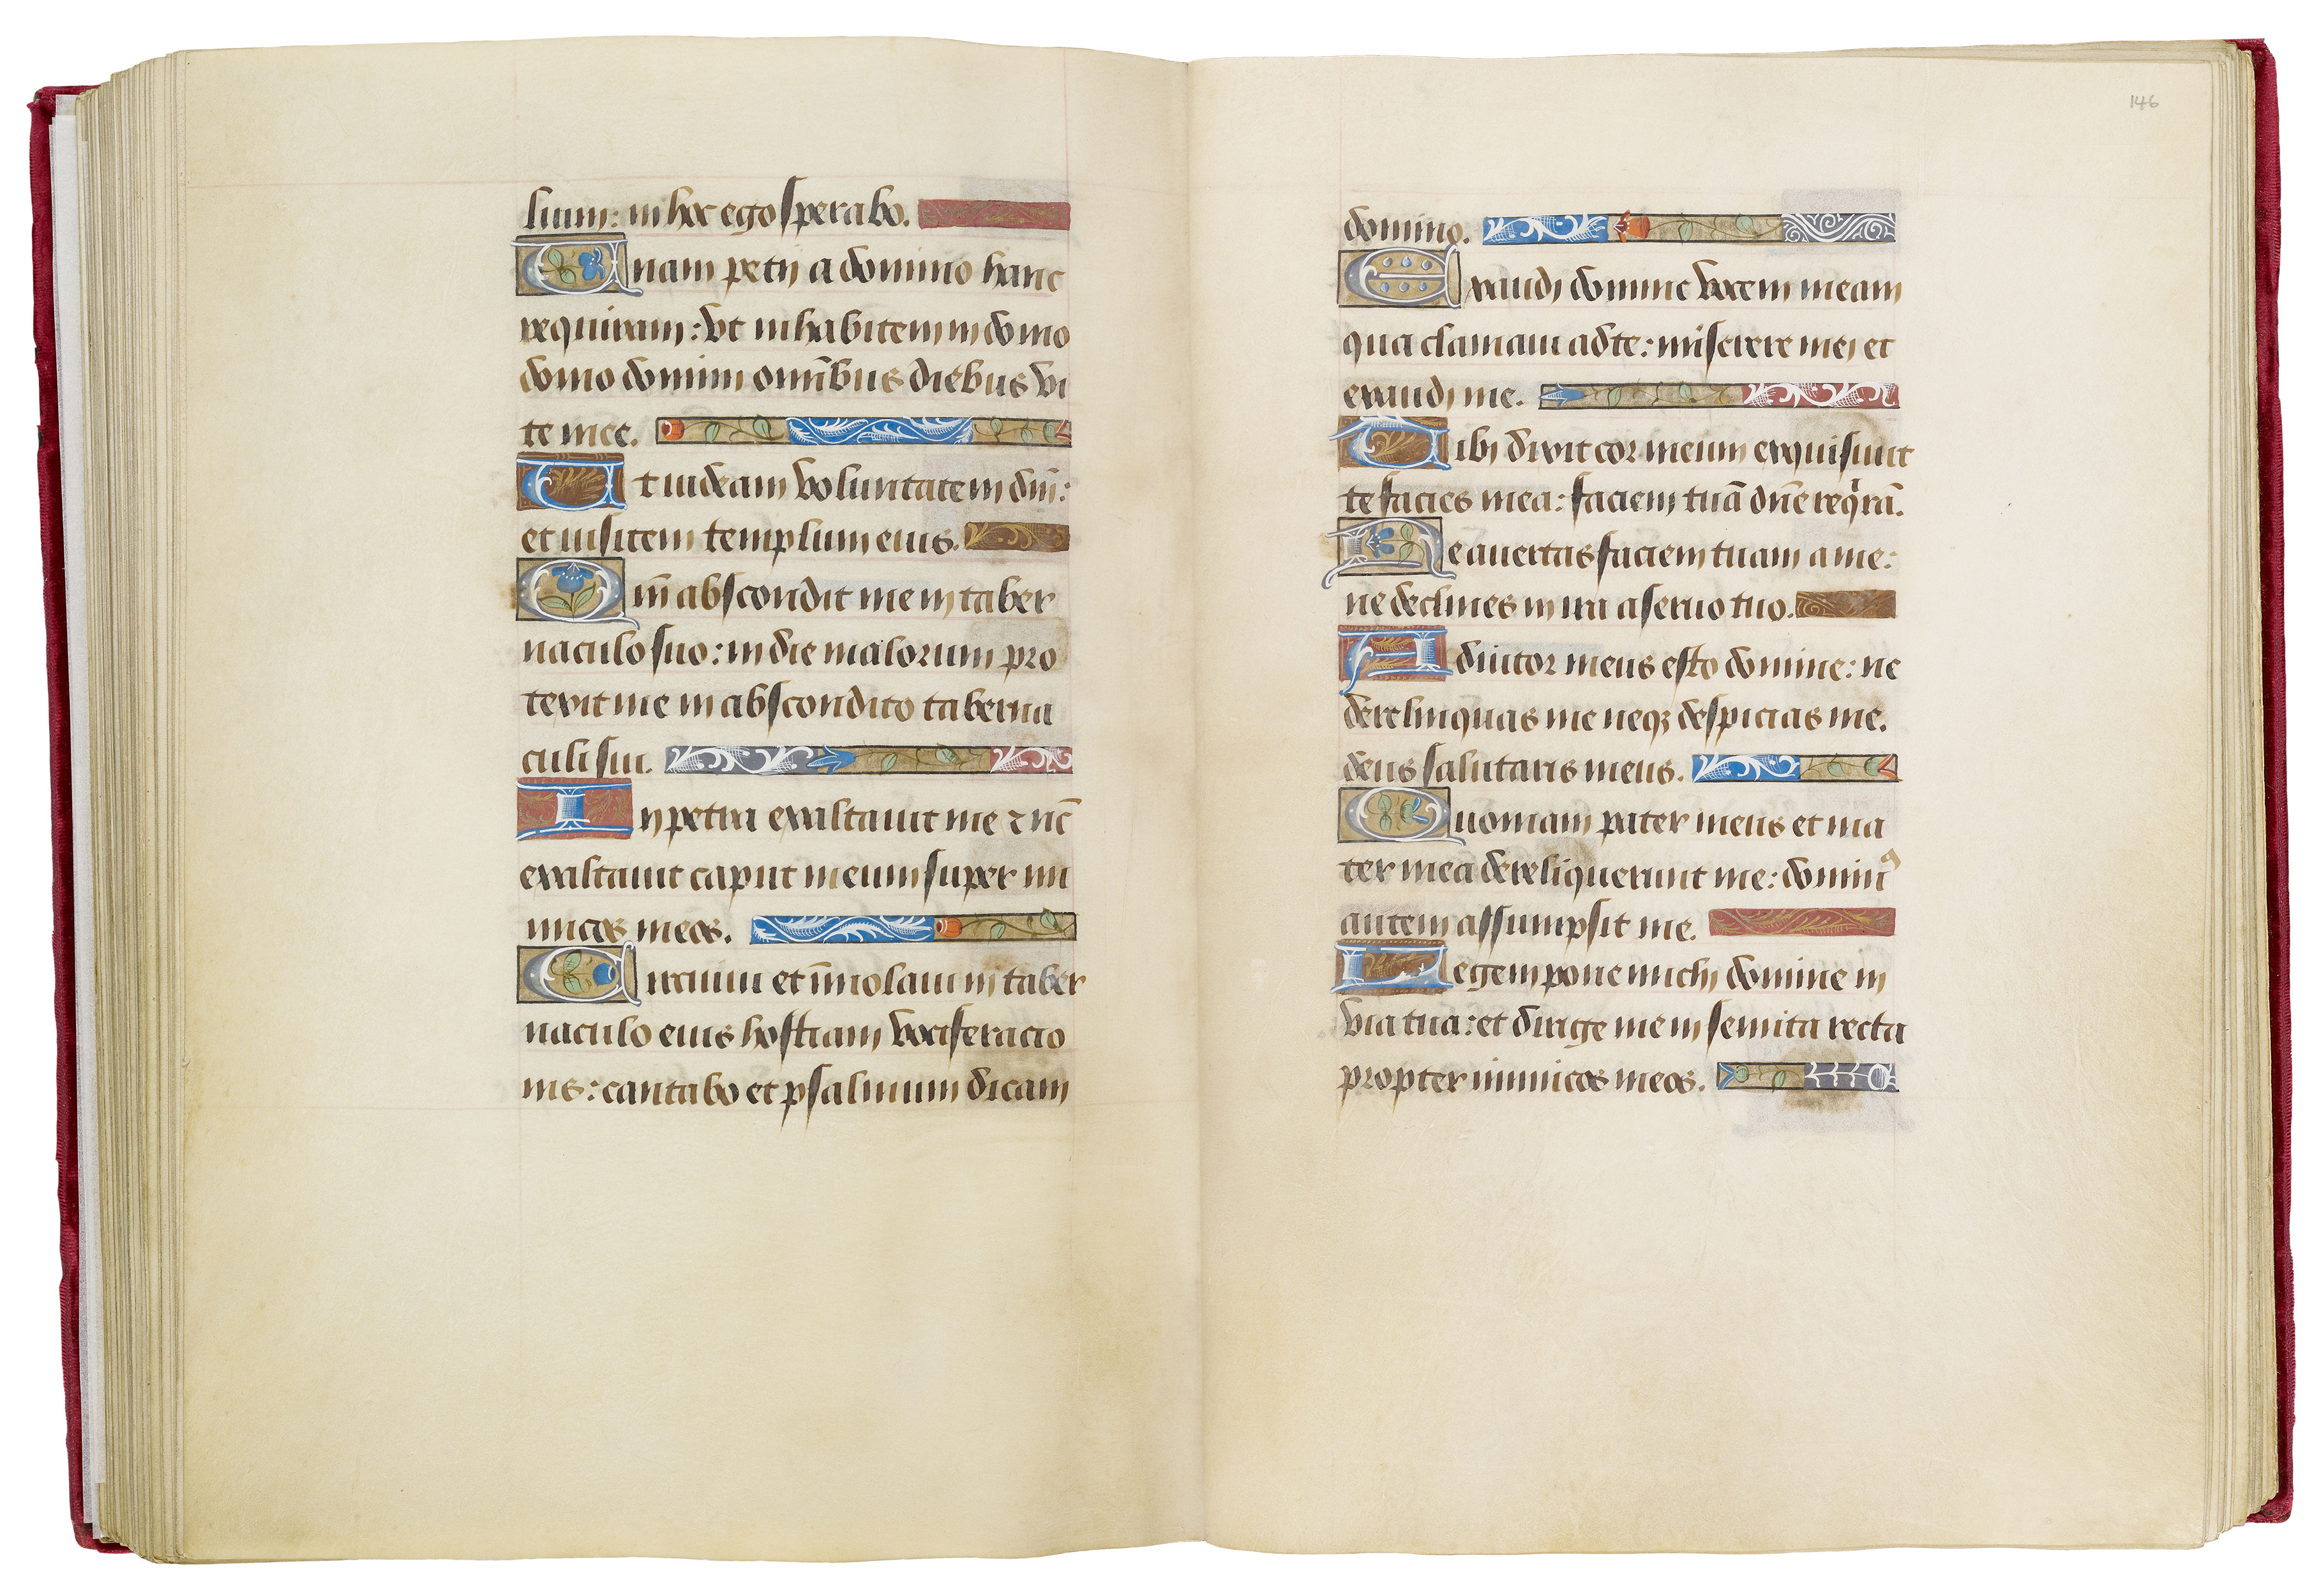 lium: in hoc ego sperabo.
Unam petij a domino hanc
requiram: vt inhabitem in domo
domo domini omībus diebus vi
te mee.
Ut uideam voluntatem dm̄:
et uisitem templum eius.
Qm̄ abscondit me in taber
naculo suo: in die malorum pro
texit me in abscondito taberna
culi sui.
In petra exaltauit me ⁊ nc̄
exaltauit caput meum super ini
micos meos.
Circuiui et īmolaui in taber
naculo eius hostiam vociferacio
nis: cantabo et psalmum dicam
146
domino.
Exaudi domine vocem meam
qua clamaui ad te: miserere mei et
exaudi me.
Tibi dixit cor meum exquisiuit
te facies mea: faciem tuā dn̄e reqͥrā.
Ne auertas faciem tuam a me:
ne declines in ira a seruo tuo.
Adiutor meus esto domine: ne
derelinquas me neqꝫ despicias me.
deus salutaris meus.
Quoniam pater meus et ma
ter mea dereliquerunt me: dominꝰ
autem assumpsit me.
Legem pone michi domine in
via tua: et dirige me in semita recta
propter inimicos meos.